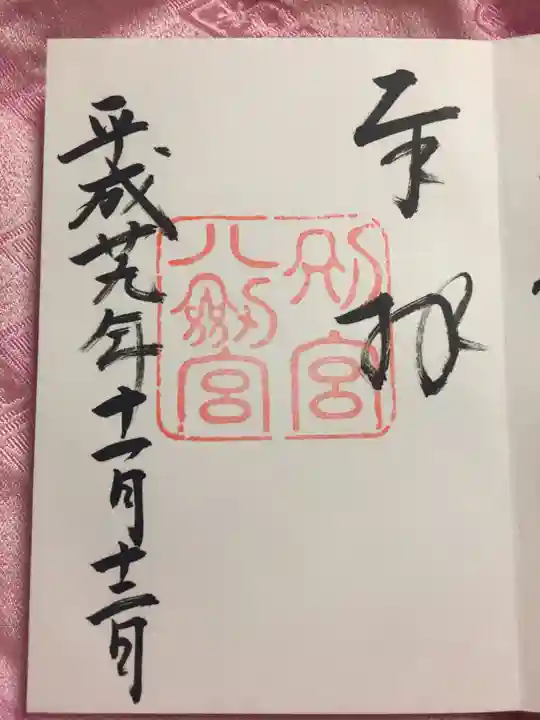 奉拝
別宮
八剱宮
平成廿九年十一月十二日